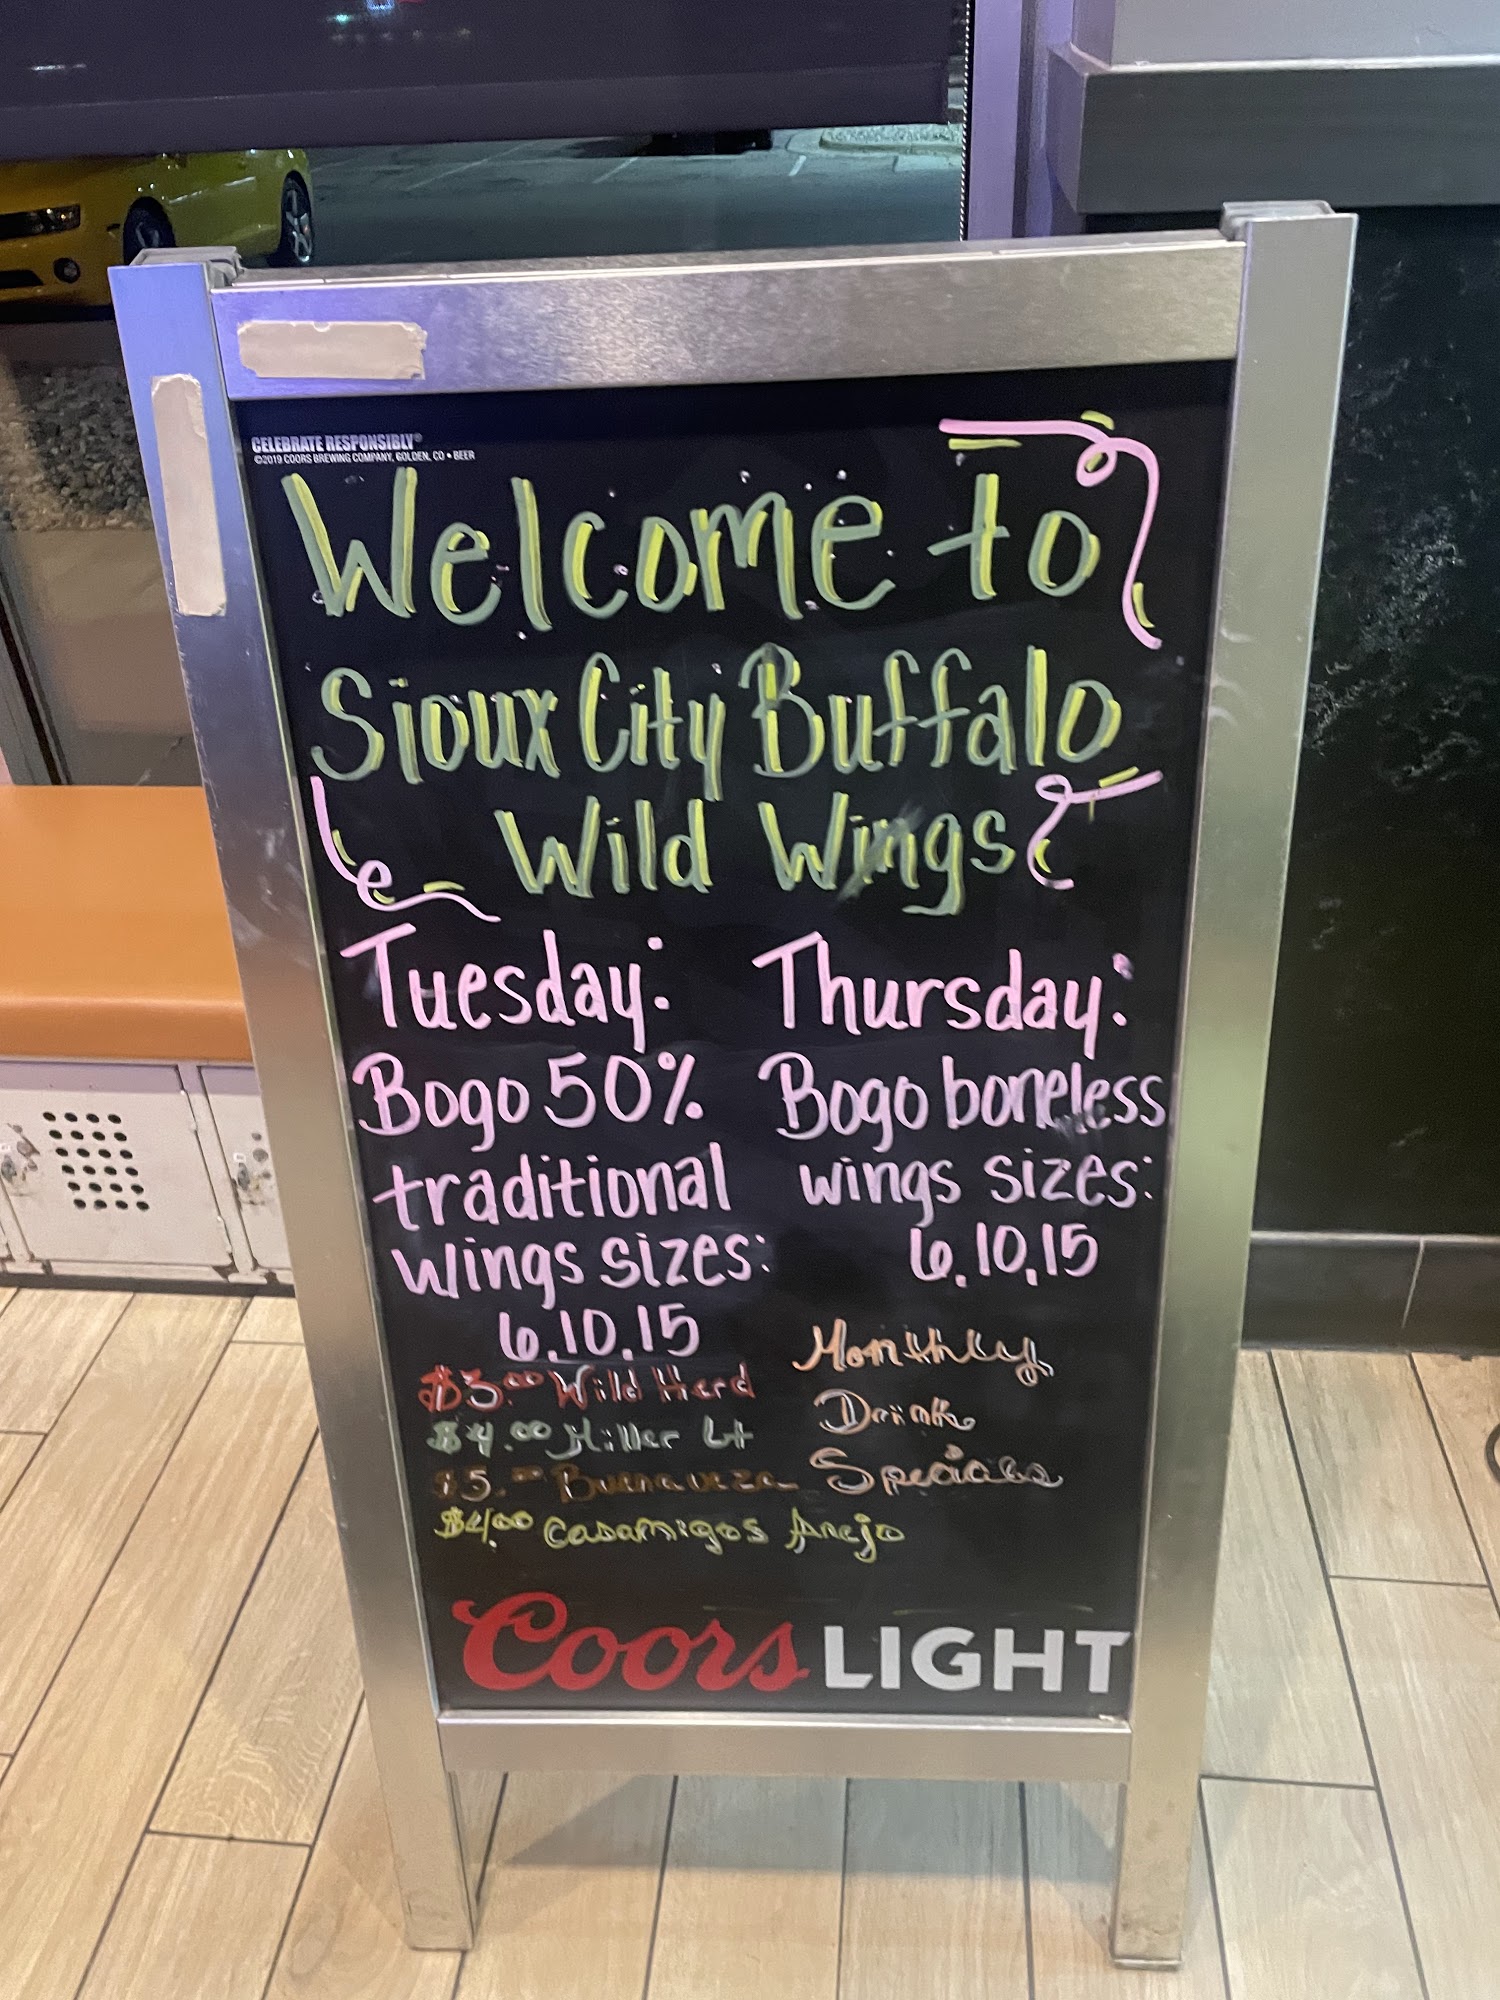 CELEBRATE RESPONSIBLY®
©2019 COORS BREWING COMPANY, GOLDEN, CO • BEER
Welcome to
Sioux City Buffalo
Wild Wings
Tuesday:
Bogo 50%
traditional
wings sizes:
6,10,15
Thursday:
Bogo boneless
wings sizes:
6,10,15
$3.00 Wild Herd
$4.00 Miller Lt
$5.00 Buenaveza
$4.00 Casamigos Anejo
Monthly
Drink
Specials
Coors LIGHT